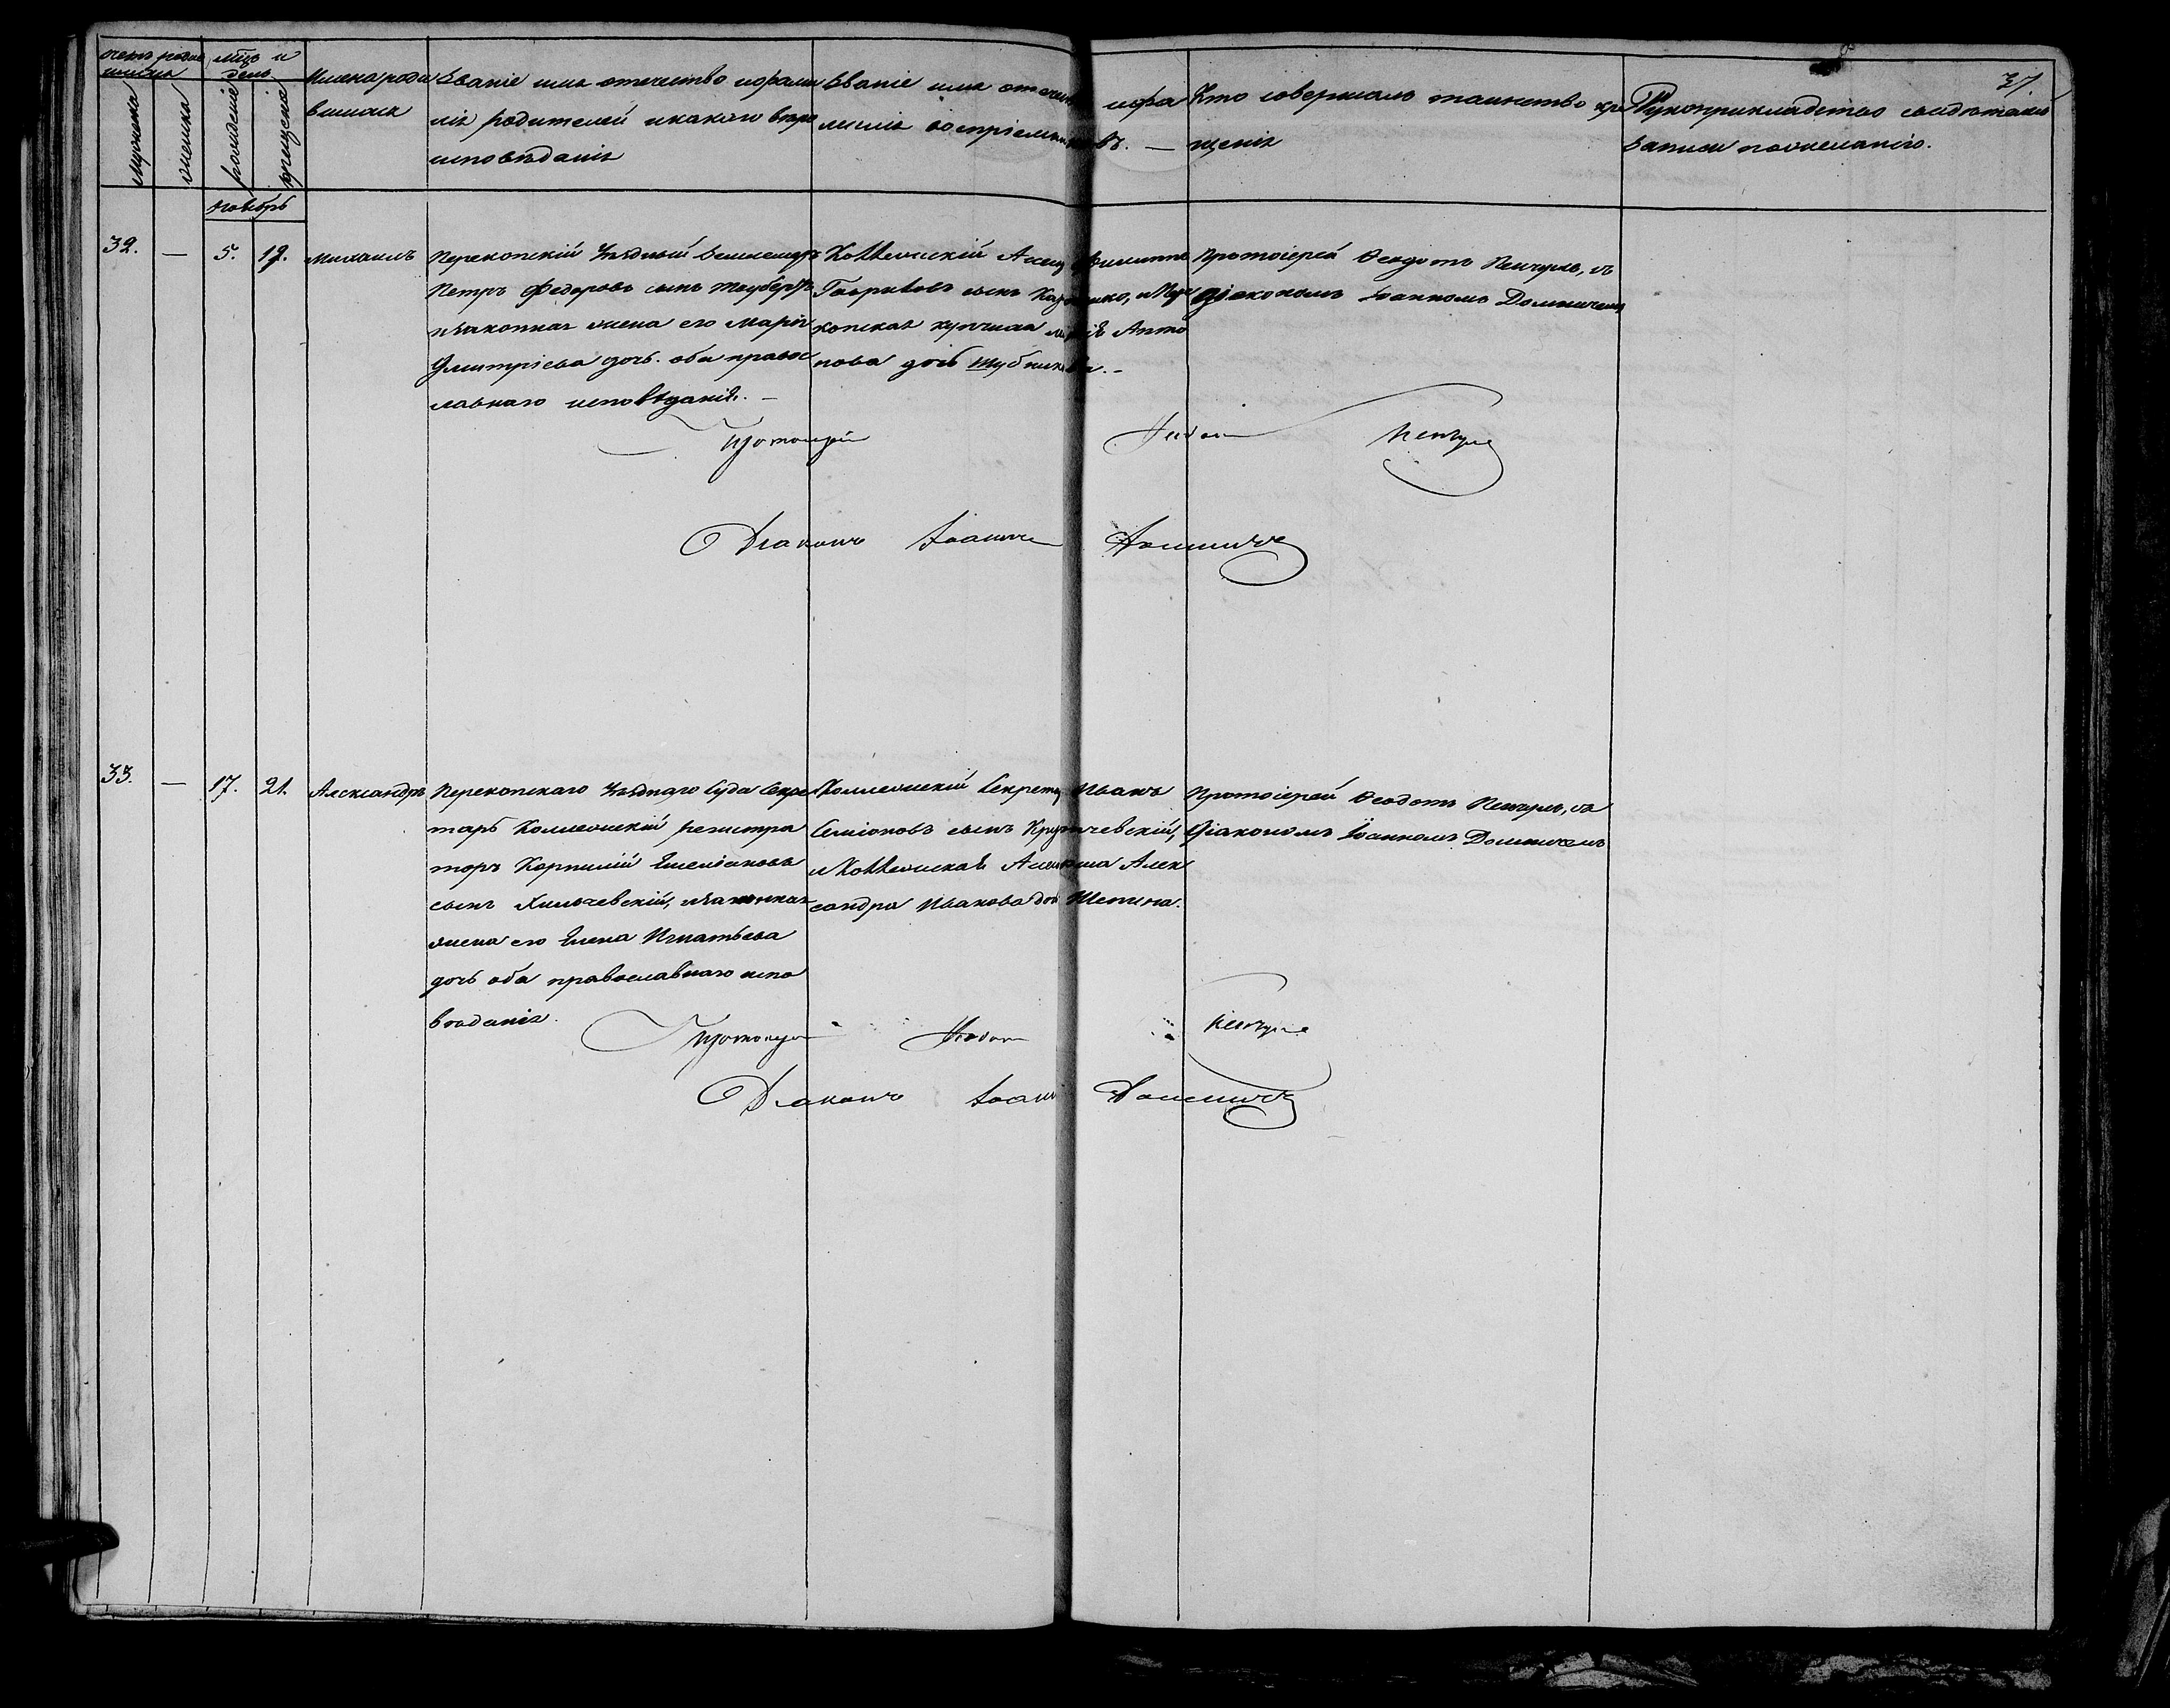 37
счетъ родив
шихся
мѣць и
день
мужеска
женска
рожденіе
крещенія
Имена роди
вшихся
Званіе имя отечество ифами
лія родителей икакого вѣро
исповѣданія
Званіе имя отечес ифа
милія воспріемниковъ. —
Кто совершалъ таинство кре
щенія
Рукоприкладство свидѣтелей
записи пожеланію.
Ноябрь
32. — 5. 12. Михаилъ
Перекопскій Уѣздный Землемеръ
Петръ Федоровъ сынъ
изаконная жена его Марія
Дмитріева дочь. оба правос
лавнаго исповѣданія. —
Коллежскій Асец Филиппъ
Гавриловъ сынъ иПере
копская купчиха Анто
нова дочь
Протоіерей Ѳеодотъ Ненчулъ, съ
Діакономъ Іоанномъ
Протоіерей Ѳеодотъ
Діаконъ Іоаннъ
33. — 17. 21. Александръ
Перекопскаго Уѣзднаго Суда Секре
тарь Коллежскій регистра
торъ Корнилій Емеліановъ
сынъ Хильчевскій, изаконная
жена его Елена Игнатьева
дочь оба православнаго испо
вѣданія.
Коллежскій Секретар Иванъ
Семіоновъ сынъ
иКоллежская Асецорша Алек
сандра Иванова дочь Шепина.
Протоіерей Ѳеодотъ Ненчулъ, съ
Діакономъ Іоанномъ
Протоіерей Ѳеодотъ
Діаконъ Іоаннъ